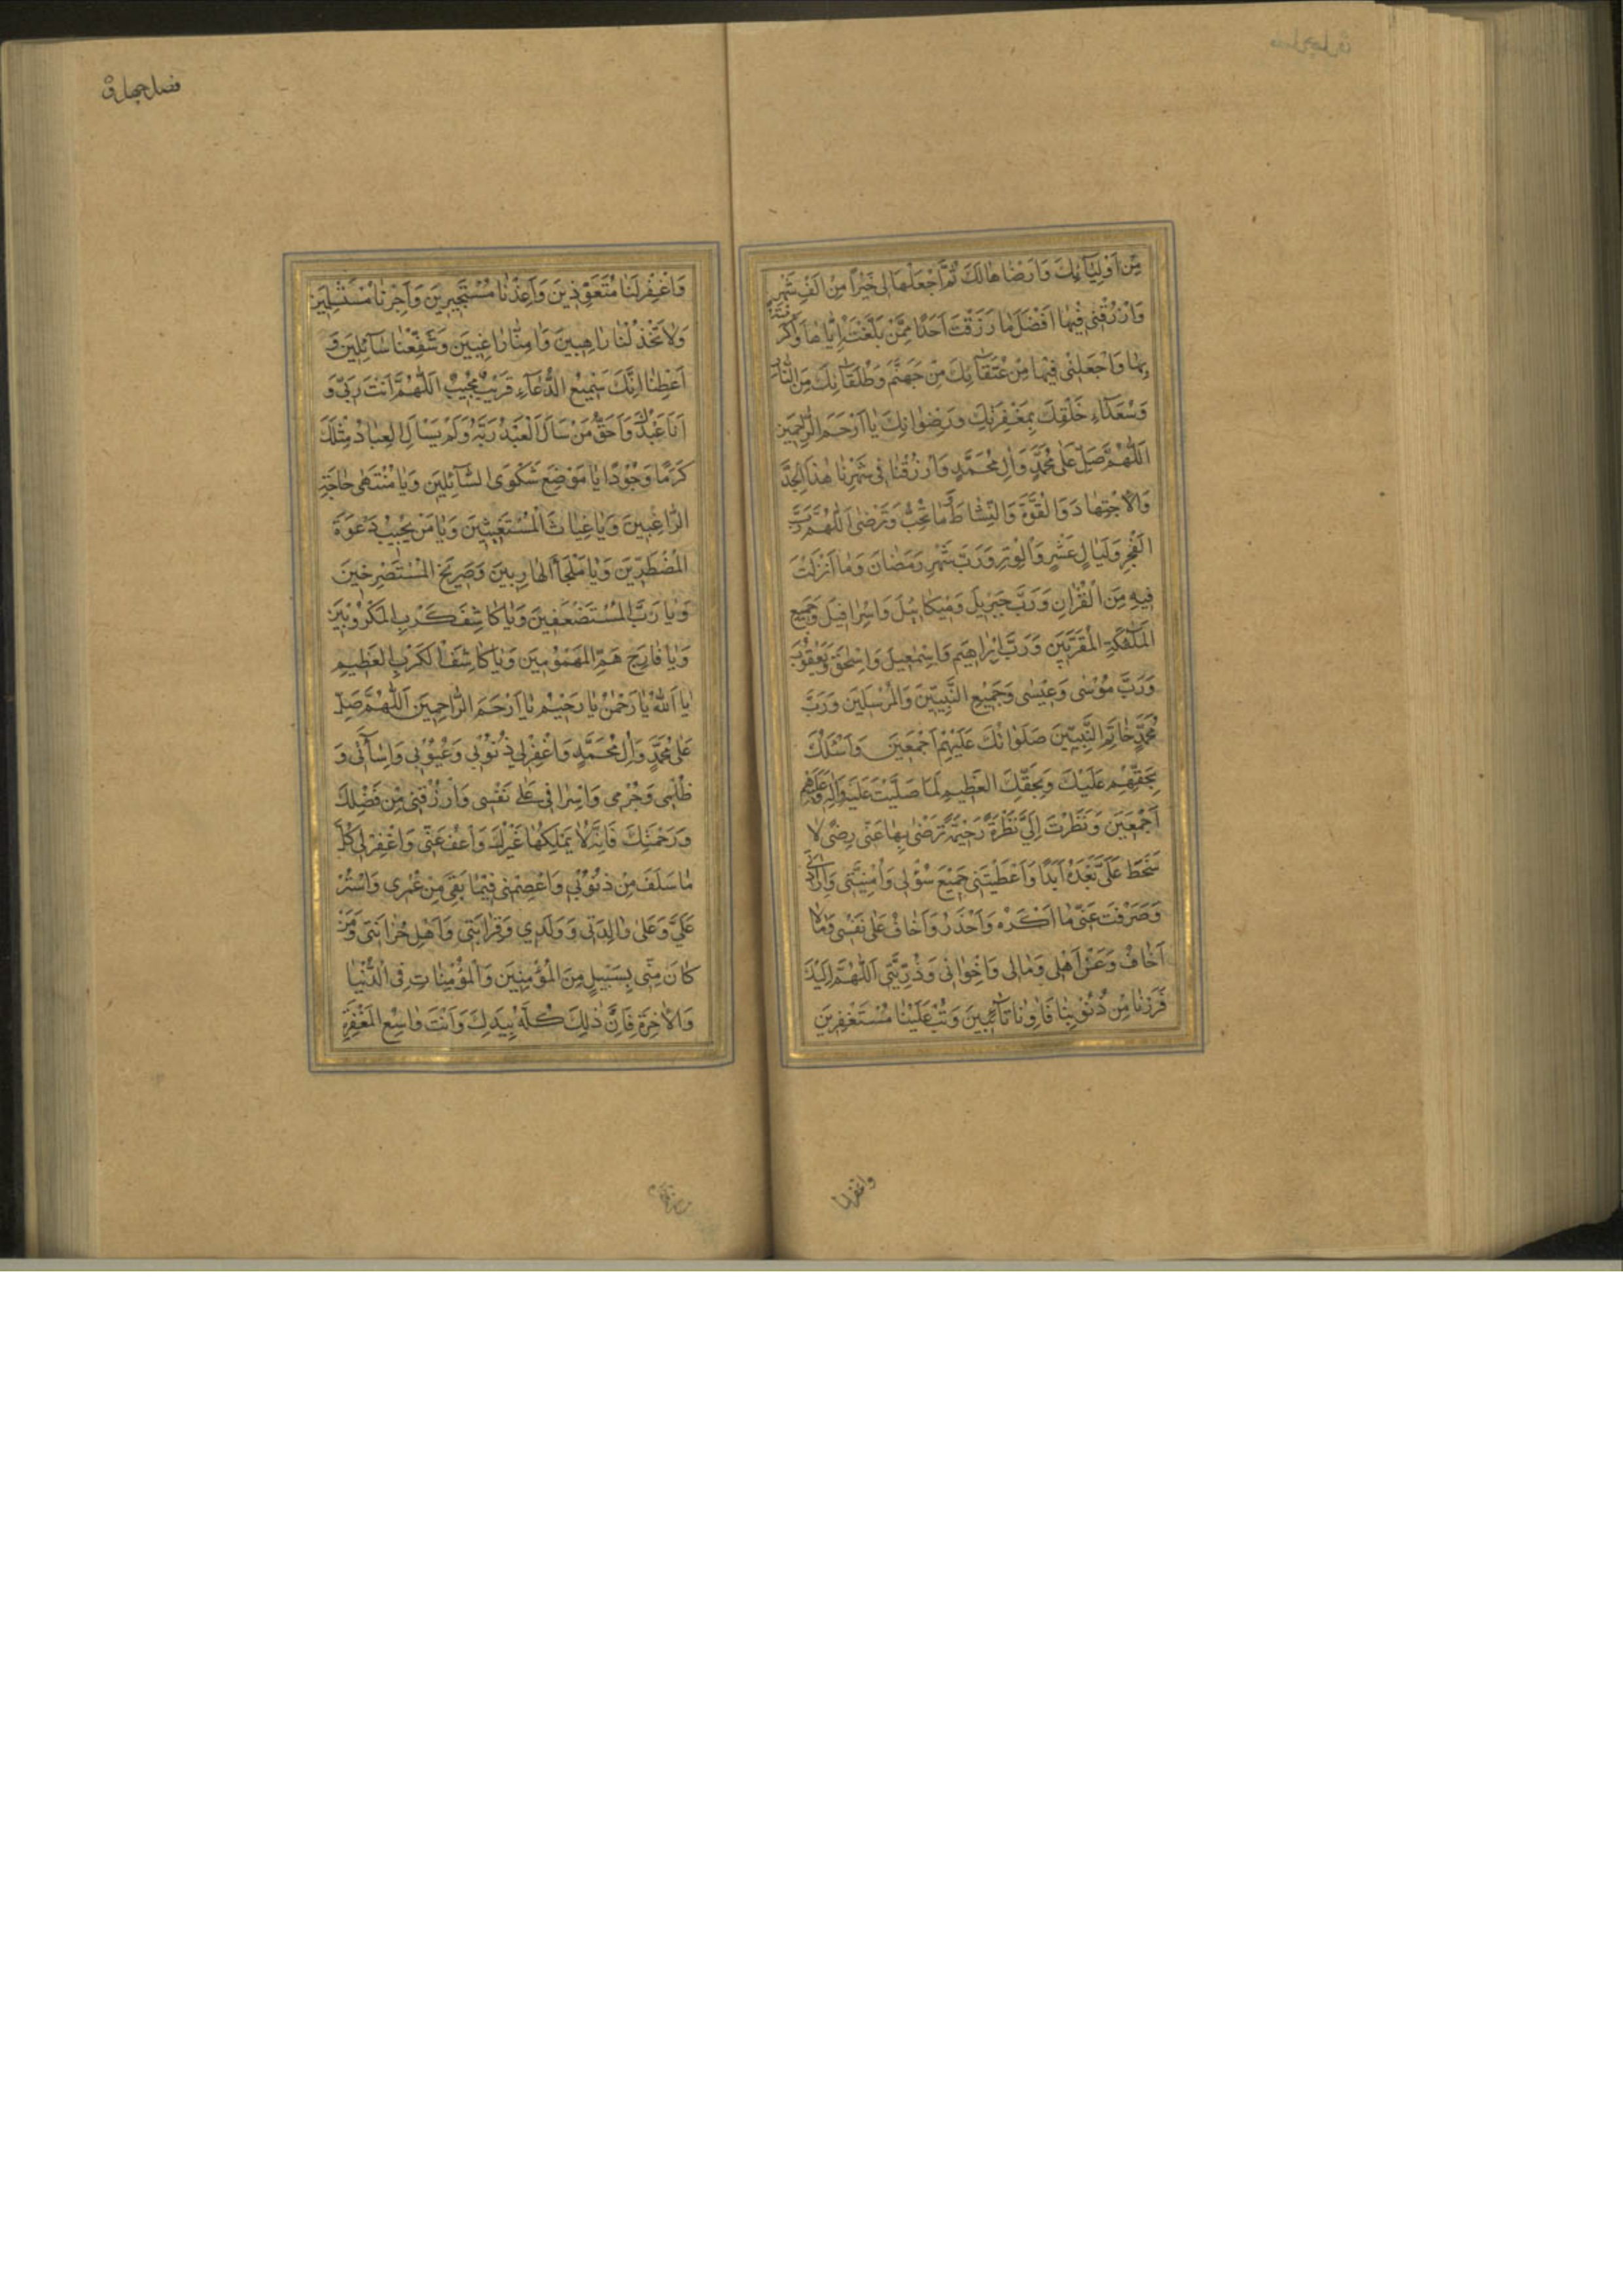 مِنْ اَوْلِيَآئِكَ وَاَرْضٰاهٰا لَكَ ثُمَّ اجْعَلْهٰا لِى خَيْراً مِنْ اَلْفِ شَهْرٍ
وَارْزُقْنِى فِيهٰا اَفْضَلَ مٰا رَزَقْتَ اَحَدًا مِمَّنْ بَلَّغْتَهُ اِيّٰاهٰا وَاَكْرَمْتَهُ
بِهٰا وَاجْعَلْنِى فِيهٰا مِنْ عُتَقٰآئِكَ مِنْ جَهَنَّمَ وَطُلَقٰآئِكَ مِنَ النّٰارِ
وَسُعَدٰآءِ خَلْقِكَ بِمَغْفِرَتِكَ وَرِضْوٰانِكَ يٰا اَرْحَمَ الرّٰاحِمِينَ
اَللّٰهُمَّ صَلِّ عَلٰى مُحَمَّدٍ وَاٰلِ مُحَمَّدٍ وَارْزُقْنٰا فِى شَهْرِنٰا هٰذَا الْجِدَّ
وَالْاِجْتِهٰادَ وَالْقُوَّةَ وَالنِّشٰاطَ مٰا تُحِبُّ وَتَرْضٰى اَللّٰهُمَّ رَبَّ
الْفَجْرِ وَلَيٰالٍ عَشْرٍ وَالْوَتْرِ وَرَبَّ شَهْرِ رَمَضٰانَ وَمٰا اَنْزَلْتَ
فِيهِ مِنَ الْقُرْاٰنِ وَرَبَّ جَبْرِئِيلَ وَمِيكٰائِيلَ وَاِسْرٰافِيلَ وَجَمِيعِ
الْمَلٰٓئِكَةِ الْمُقَرَّبِينَ وَرَبَّ اِبْرٰاهِيمَ وَاِسْمٰعِيلَ وَاِسْحٰقَ وَيَعْقُوبَ
وَرَبَّ مُوسٰى وَعِيسٰى وَجَمِيعِ النَّبِيِّينَ وَالْمُرْسَلِينَ وَرَبَّ
مُحَمَّدٍ خٰاتَمِ النَّبِيِّينَ صَلَوٰاتُكَ عَلَيْهِمْ اَجْمَعِينَ وَاَسْئَلُكَ
بِحَقِّهِمْ عَلَيْكَ وَبِحَقِّكَ الْعَظِيمِ لَمّٰا صَلَّيْتَ عَلَيْهِ وَاٰلِهِ وَعَلَيْهِمْ
اَجْمَعِينَ وَنَظَرْتَ اِلَيَّ نَظْرَةً رَحِيمَةً تَرْضٰى بِهٰا عَنِّى رِضًى لٰا
سَخَطَ عَلَيَّ بَعْدَهُ اَبَدًا وَاَعْطَيْتَنِى جَمِيعَ سُؤْلِى وَاُمْنِيَّتِى وَاِرٰادَتِى
وَصَرَفْتَ عَنِّى مٰا اَكْرَهُ وَاَحْذَرُ وَاَخٰافُ عَلٰى نَفْسِى وَمٰا لٰا
اَخٰافُ وَعَنْ اَهْلِى وَمٰالِى وَاِخْوٰانِى وَذُرِّيَّتِى اَللّٰهُمَّ اِلَيْكَ
فَرَرْنٰا مِنْ ذُنُوبِنٰا فَاٰوِنٰا تٰآئِبِينَ وَتُبْ عَلَيْنٰا مُسْتَغْفِرِينَ
واغفرلنا
فصل چهارم
وَاغْفِرْ لَنٰا مُتَعَوِّذِينَ وَاَعِذْنٰا مُسْتَجِيرِينَ وَاَجِرْنٰا مُسْتَسْلِمِينَ
وَلٰا تَخْذُلْنٰا رٰاهِبِينَ وَاٰمِنّٰا رٰاغِبِينَ وَشَفِّعْنٰا سٰآئِلِينَ وَ
اَعْطِنٰا اِنَّكَ سَمِيعُ الدُّعٰآءِ قَرِيبٌ مُجِيبٌ اَللّٰهُمَّ اَنْتَ رَبِّى وَ
اَنَا عَبْدُكَ وَاَحَقُّ مَنْ سَاَلَ الْعَبْدُ رَبَّهُ وَلَمْ يَسْاَلِ الْعِبٰادُ مِثْلَكَ
كَرَمًا وَجُودًا يٰا مَوْضِعَ شَكْوَى السّٰآئِلِينَ وَيٰا مُنْتَهٰى حٰاجَةِ
الرّٰاغِبِينَ وَيٰا غِيٰاثَ الْمُسْتَغِيثِينَ وَيٰا مَنْ يُجِيبُ دَعْوَةَ
الْمُضْطَرِّينَ وَيٰا مَلْجَاَ الْهٰارِبِينَ وَصَرِيخَ الْمُسْتَصْرِخِينَ
وَيٰا رَبَّ الْمُسْتَضْعَفِينَ وَيٰا كٰاشِفَ كَرْبِ الْمَكْرُوبِينَ
وَيٰا فٰارِجَ هَمِّ الْمَهْمُومِينَ وَيٰا كٰاشِفَ الْكَرْبِ الْعَظِيمِ
يٰا اَللّٰهُ يٰا رَحْمٰنُ يٰا رَحِيمُ يٰا اَرْحَمَ الرّٰاحِمِينَ اَللّٰهُمَّ صَلِّ
عَلٰى مُحَمَّدٍ وَاٰلِ مُحَمَّدٍ وَاغْفِرْ لِي ذُنُوبِي وَعُيُوبِي وَاِسٰآئَتِى وَ
ظُلْمِى وَجُرْمِى وَاِسْرٰافِى عَلٰى نَفْسِى وَارْزُقْنِى مِنْ فَضْلِكَ
وَرَحْمَتِكَ فَاِنَّهُ لٰا يَمْلِكُهٰا غَيْرُكَ وَاعْفُ عَنِّى وَاغْفِرْ لِى كُلَّ
مٰا سَلَفَ مِنْ ذُنُوبِى وَاعْصِمْنِى فِيمٰا بَقِيَ مِنْ عُمْرِى وَاسْتُرْ
عَلَيَّ وَعَلٰى وٰالِدَتِى وَوَلَدِي وَقَرٰابَتِى وَاَهْلِ حُزٰانَتِى وَمَنْ
كٰانَ مِنِّى بِسَبِيلٍ مِنَ الْمُؤْمِنِينَ وَالْمُؤْمِنٰاتِ فِى الدُّنْيٰا
وَالْاٰخِرَةِ فَاِنَّ ذٰلِكَ كُلَّهُ بِيَدِكَ وَاَنْتَ وٰاسِعُ الْمَغْفِرَةِ